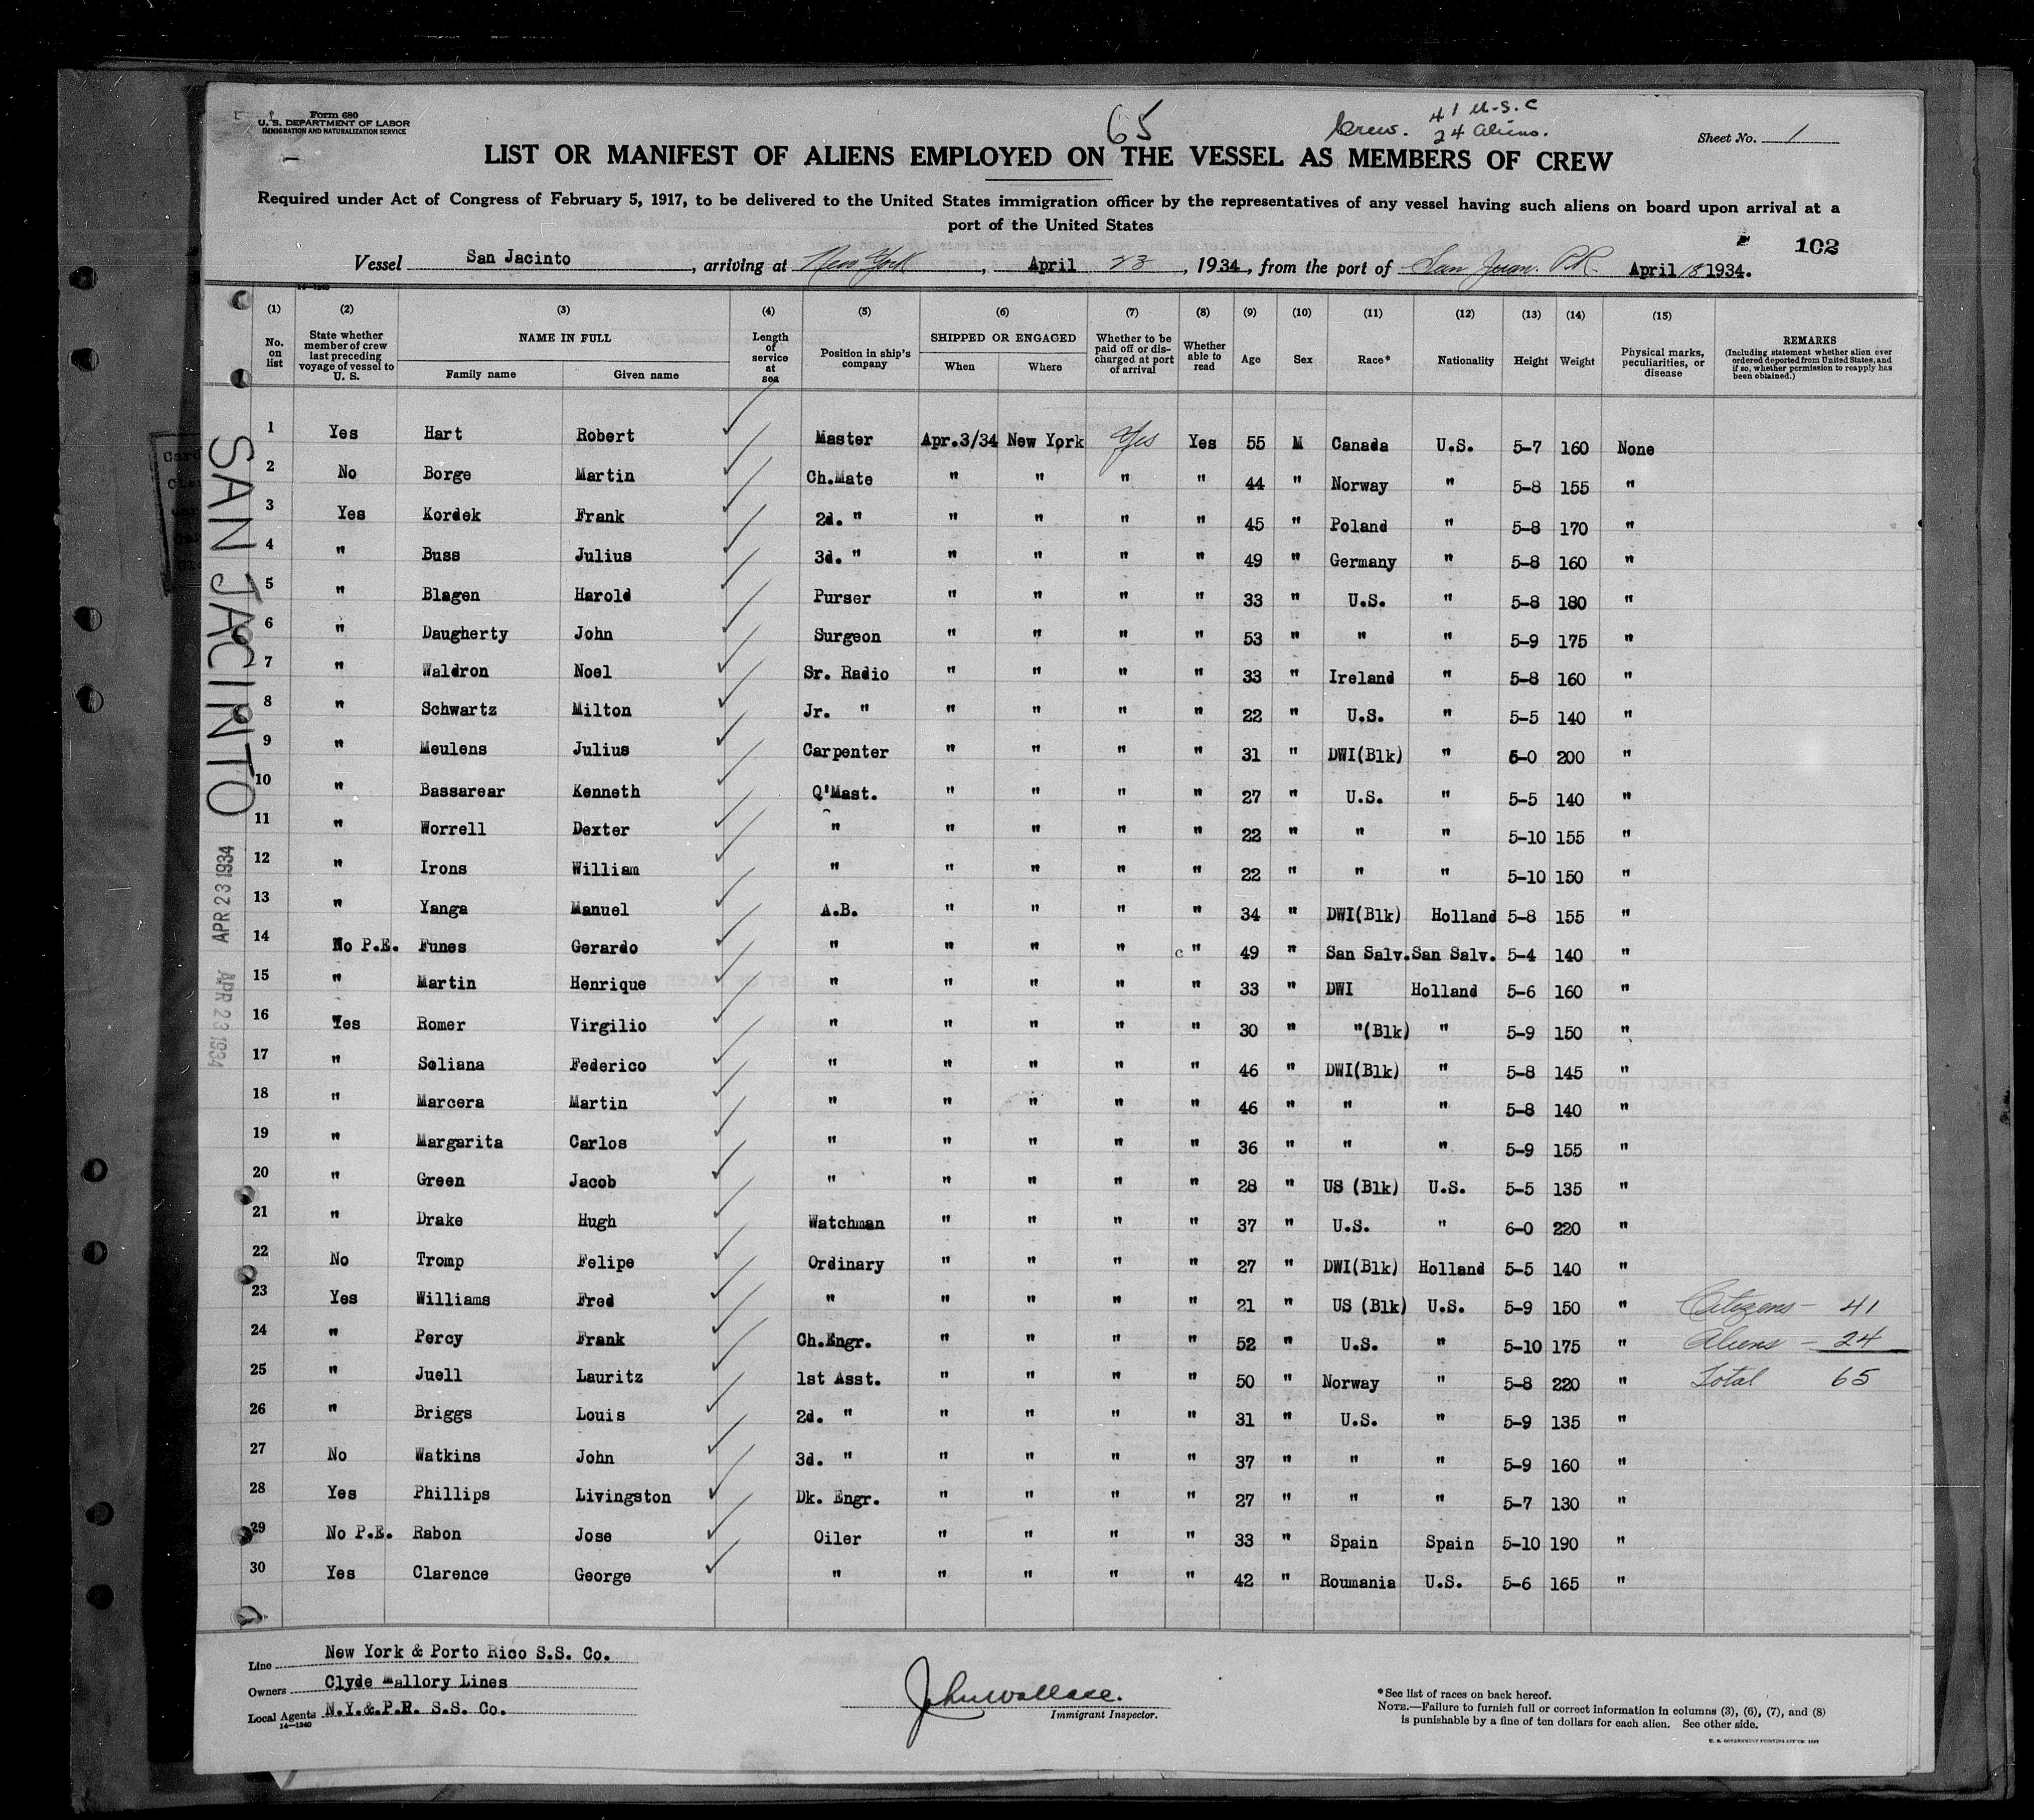 Form 680
U. S. DEPARTMENT OF LABOR
IMMIGRATION AND NATURALIZATION SERVICE
65
Crew. 41 U.S.C
24 Aliens.
Sheet No. 1
LIST OR MANIFEST OF ALIENS EMPLOYED ON THE VESSEL AS MEMBERS OF CREW
Required under Act of Congress of February 5, 1917, to be delivered to the United States immigration officer by the representatives of any vessel having such aliens on board upon arrival at a
port of the United States
102
Vessel San Jacinto, arriving at New York, April 23, 1934, from the port of San Juan. P.R. April 18 1934.
14—1240
(1) (2) (3) (4) (5) (6) (7) (8) (9) (10) (11) (12) (13) (14) (15)
No. on list State whether member of crew last preceding voyage of vessel to U. S. NAME IN FULL Family name Given name Length of service at sea Position in ship's company SHIPPED OR ENGAGED When Where Whether to be paid off or discharged at port of arrival Whether able to read Age Sex Race* Nationality Height Weight Physical marks, peculiarities, or disease REMARKS (Including statement whether alien ever ordered deported from United States, and if so, whether permission to reapply has been obtained.)
1 Yes Hart Robert Master Apr.3/34 New York Yes Yes 55 M Canada U.S. 5-7 160 None
2 No Borge Martin Ch.Mate " " " " 44 " Norway " 5-8 155 "
3 Yes Kordek Frank 2d. " " " " " 45 " Poland " 5-8 170 "
4 " Buss Julius 3d. " " " " " 49 " Germany " 5-8 160 "
5 " Blagen Harold Purser " " " " 33 " U.S. " 5-8 180 "
6 " Daugherty John Surgeon " " " " 53 " " " 5-9 175 "
7 " Waldron Noel Sr. Radio " " " " 33 " Ireland " 5-8 160 "
8 " Schwartz Milton Jr. " " " " " 22 " U.S. " 5-5 140 "
9 " Meulens Julius Carpenter " " " " 31 " DWI(Blk) " 6-0 200 "
10 " Bassarear Kenneth Q'Mast. " " " " 27 " U.S. " 5-5 140 "
11 " Worrell Dexter " " " " " 22 " " " 5-10 155 "
12 " Irons William " " " " " 22 " " " 5-10 150 "
13 " Yanga Manuel A.B. " " " " 34 " DWI(Blk) Holland 5-8 155 "
14 No P.E. Funes Gerardo " " " " c " 49 " San Salv. San Salv. 5-4 140 "
15 " Martin Henrique " " " " " 33 " DWI Holland 5-6 160 "
16 Yes Romer Virgilio " " " " " 30 " "(Blk) " 5-9 150 "
17 " Soliana Federico " " " " " 46 " DWI(Blk) " 5-8 145 "
18 " Marcera Martin " " " " " 46 " " " 5-8 140 "
19 " Margarita Carlos " " " " " 36 " " " 5-9 155 "
20 " Green Jacob " " " " " 28 " US (Blk) U.S. 5-5 135 "
21 " Drake Hugh Watchman " " " " 37 " U.S. " 6-0 220 "
22 No Tromp Felipe Ordinary " " " " 27 " DWI(Blk) Holland 5-5 140 "
23 Yes Williams Fred " " " " " 21 " US (Blk) U.S. 5-9 150 " Citizens - 41
24 " Percy Frank Ch.Engr. " " " " 52 " U.S. " 5-10 175 " Aliens - 24
25 " Juell Lauritz 1st Asst. " " " " 50 " Norway " 5-8 220 " Total 65
26 " Briggs Louis 2d. " " " " " 31 " U.S. " 5-9 135 "
27 No Watkins John 3d. " " " " " 37 " " " 5-9 160 "
28 Yes Phillips Livingston Dk. Engr. " " " " 27 " " " 5-7 130 "
29 No P.E. Rabon Jose Oiler " " " " 33 " Spain Spain 5-10 190 "
30 Yes Clarence George " " " " " 42 " Roumania U.S. 5-6 165 "
SAN JACINTO
APR 23 1934
APR 23 1934
Line New York & Porto Rico S.S. Co.
Owners Clyde Mallory Lines
Local Agents N.Y.&.P.R. S.S. Co.
14—1240
John Wallace.
Immigrant Inspector.
*See list of races on back hereof.
NOTE.—Failure to furnish full or correct information in columns (3), (6), (7), and (8)
is punishable by a fine of ten dollars for each alien. See other side.